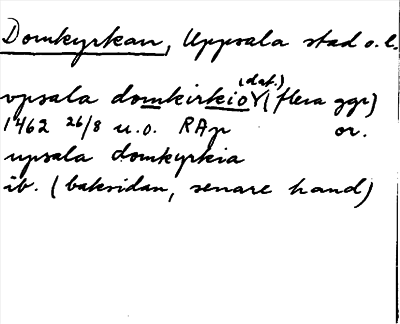 Domkyrkan, Uppsala stad o. l.
(dat.)
vpsala domkirkio (flera ggr)
1462 26/8 u.o. RAp or.
upsala domkyrkia
ib. (baksidan, senare hand)